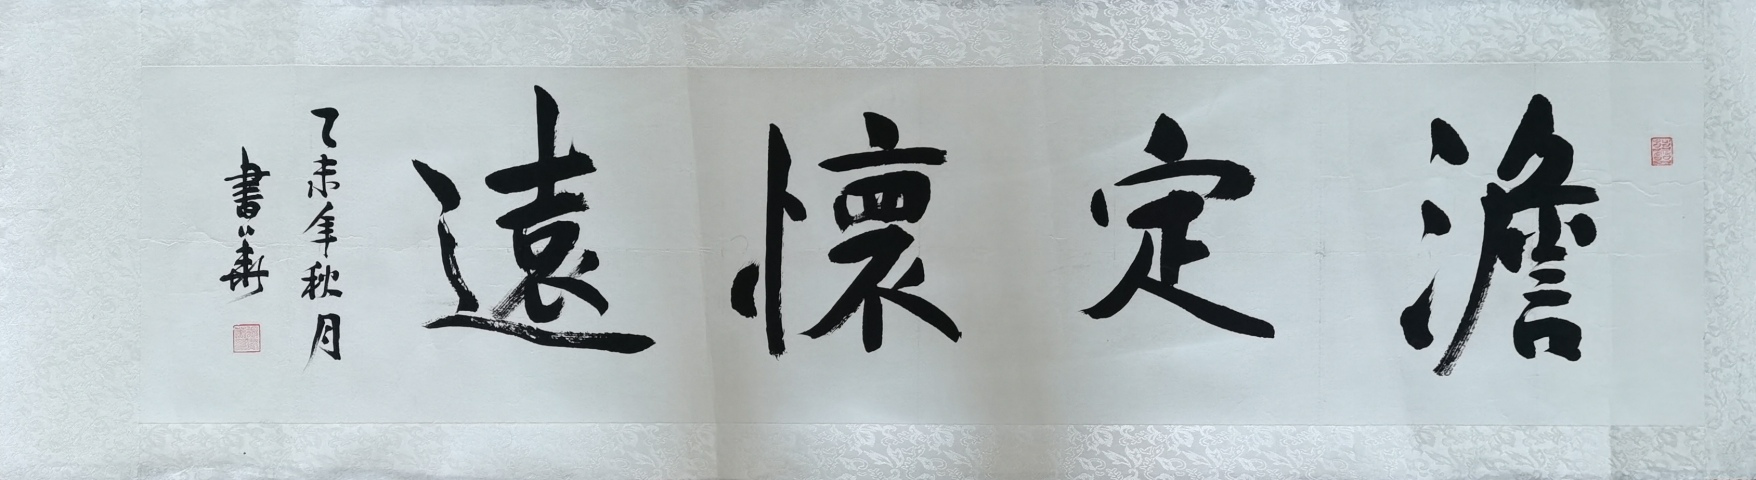 澹定懷遠
乙未年秋月
書